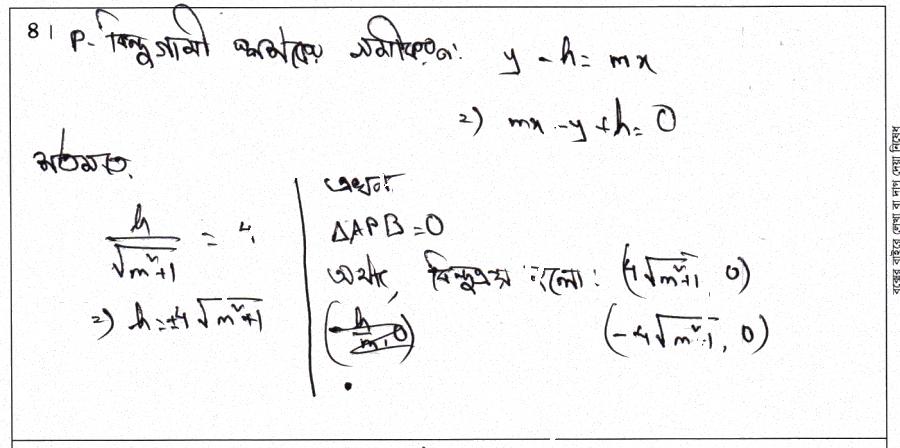 8। P- বিন্দুগামী স্পর্শকের সমীকরণ: y - h = mx
=) mx - y + h = 0
শর্তমতে,
h/√(m²+1) = 4.
=) h = ±4√(m²+1)
এখন
ΔAPB = 0
অর্থাৎ, বিন্দুত্রয় হলো: (4√(m²+1), 0)
(-4√(m²+1), 0)
বক্সের বাইরে লেখা বা দাগ দেয়া নিষেধ